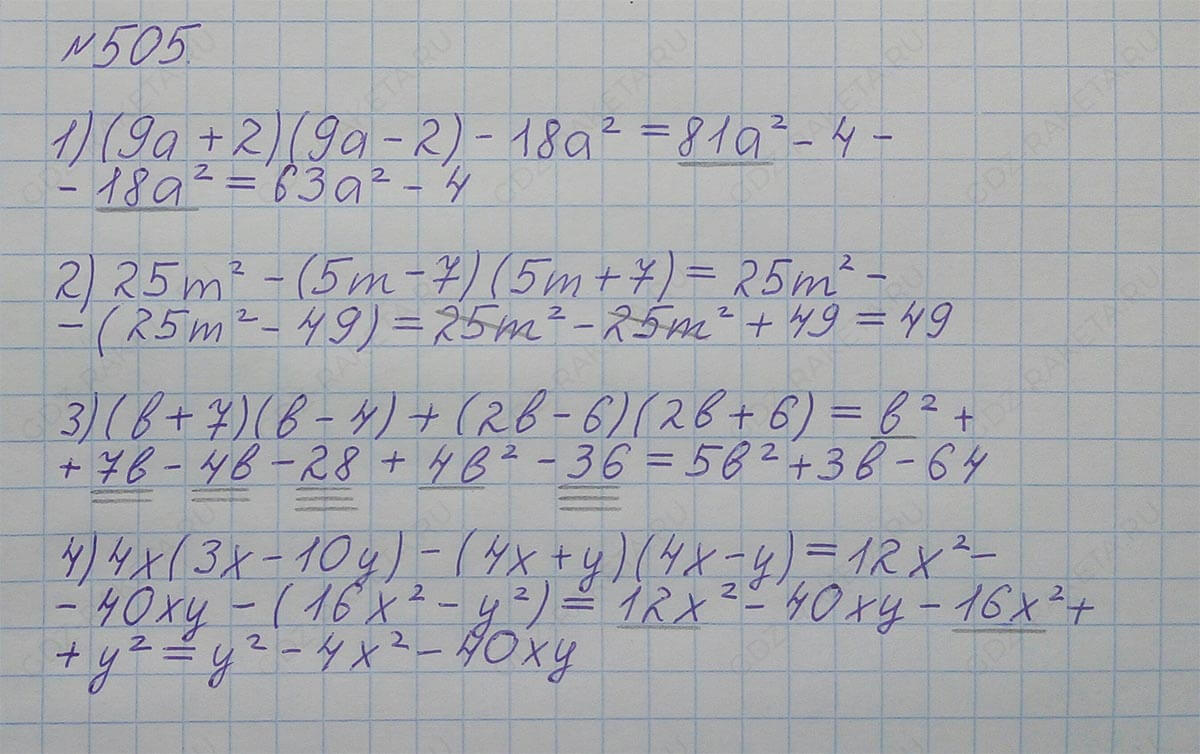 №505.
1) (9a + 2)(9a - 2) - 18a² = 81a² - 4 -
- 18a² = 63a² - 4
2) 25m² - (5m - 7)(5m + 7) = 25m² -
- (25m² - 49) = 25m² - 25m² + 49 = 49
3) (в + 7)(в - 4) + (2в - 6)(2в + 6) = в² +
+ 7в - 4в - 28 + 4в² - 36 = 5в² + 3в - 64
4) 4x(3x - 10y) - (4x + y)(4x - y) = 12x² -
- 40xy - (16x² - y²) = 12x² - 40xy - 16x² +
+ y² = y² - 4x² - 40xy
GDZ-RAKETA.RU